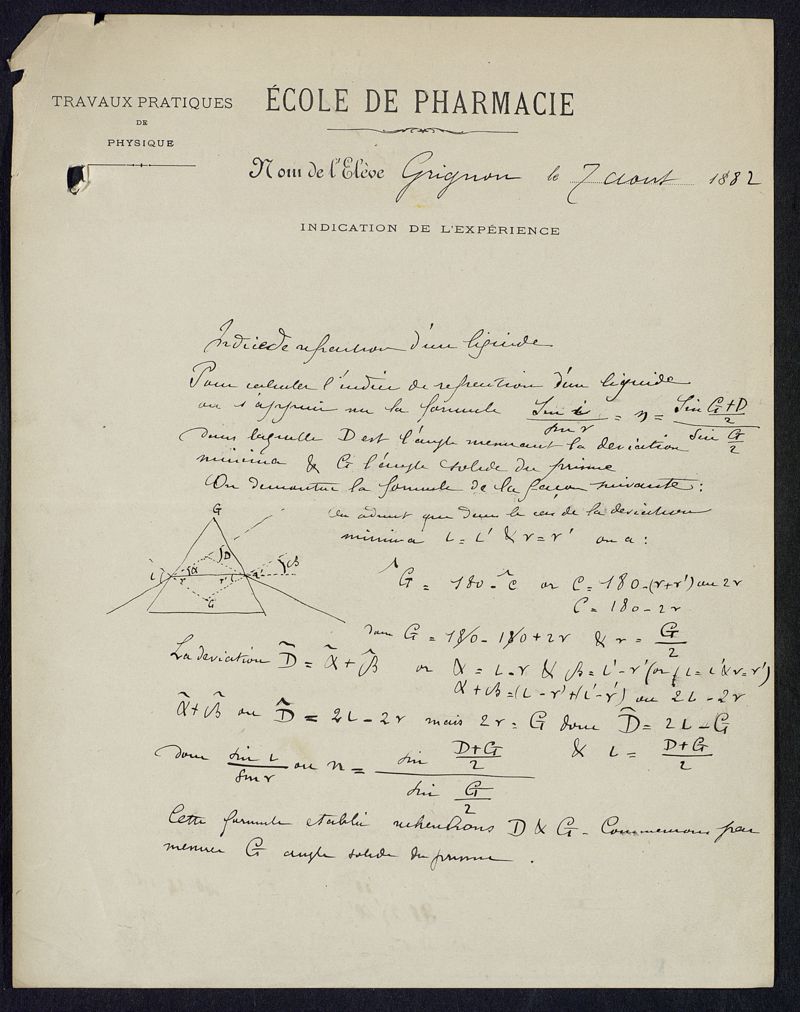 TRAVAUX PRATIQUES
DE
PHYSIQUE
ÉCOLE DE PHARMACIE
Nom de l'Elève Grignon le 7 aout 1882
INDICATION DE L'EXPÉRIENCE
Indice de refraction d'un liquide
Pour calculer l'indice de refraction d'un liquide
on s'appuie sur la formule sin i / sin r = n = sin (G+D)/2 / sin G/2
dans laquelle D est l'angle mesurant la deviation
minima & G l'angle solide du prisme
On demontre la formule de la façon suivante :
on admet que dans le cas de la deviation
minima i = i' & r = r' on a :
G
D
α
β
i
r
r'
i'
G
Ĝ = 180 - ĉ or C = 180 - (r+r') ou 2r
C = 180 - 2r
donc G = 180 - 180 + 2r & r = G/2
La deviation D̂ = α̂ + β̂ or α = i - r & β = i' - r' (or i = i' & r = r')
α + β = (i - r) + (i' - r') ou 2i - 2r
α̂ + β̂ ou D̂ = 2i - 2r mais 2r = G donc D̂ = 2i - G
& i = (D+G)/2
donc sin i / sin r ou n = sin (D+G)/2 / sin G/2
Cette formule etablie recherchons D & G - Commencons par
mesurer G angle solide du prisme .